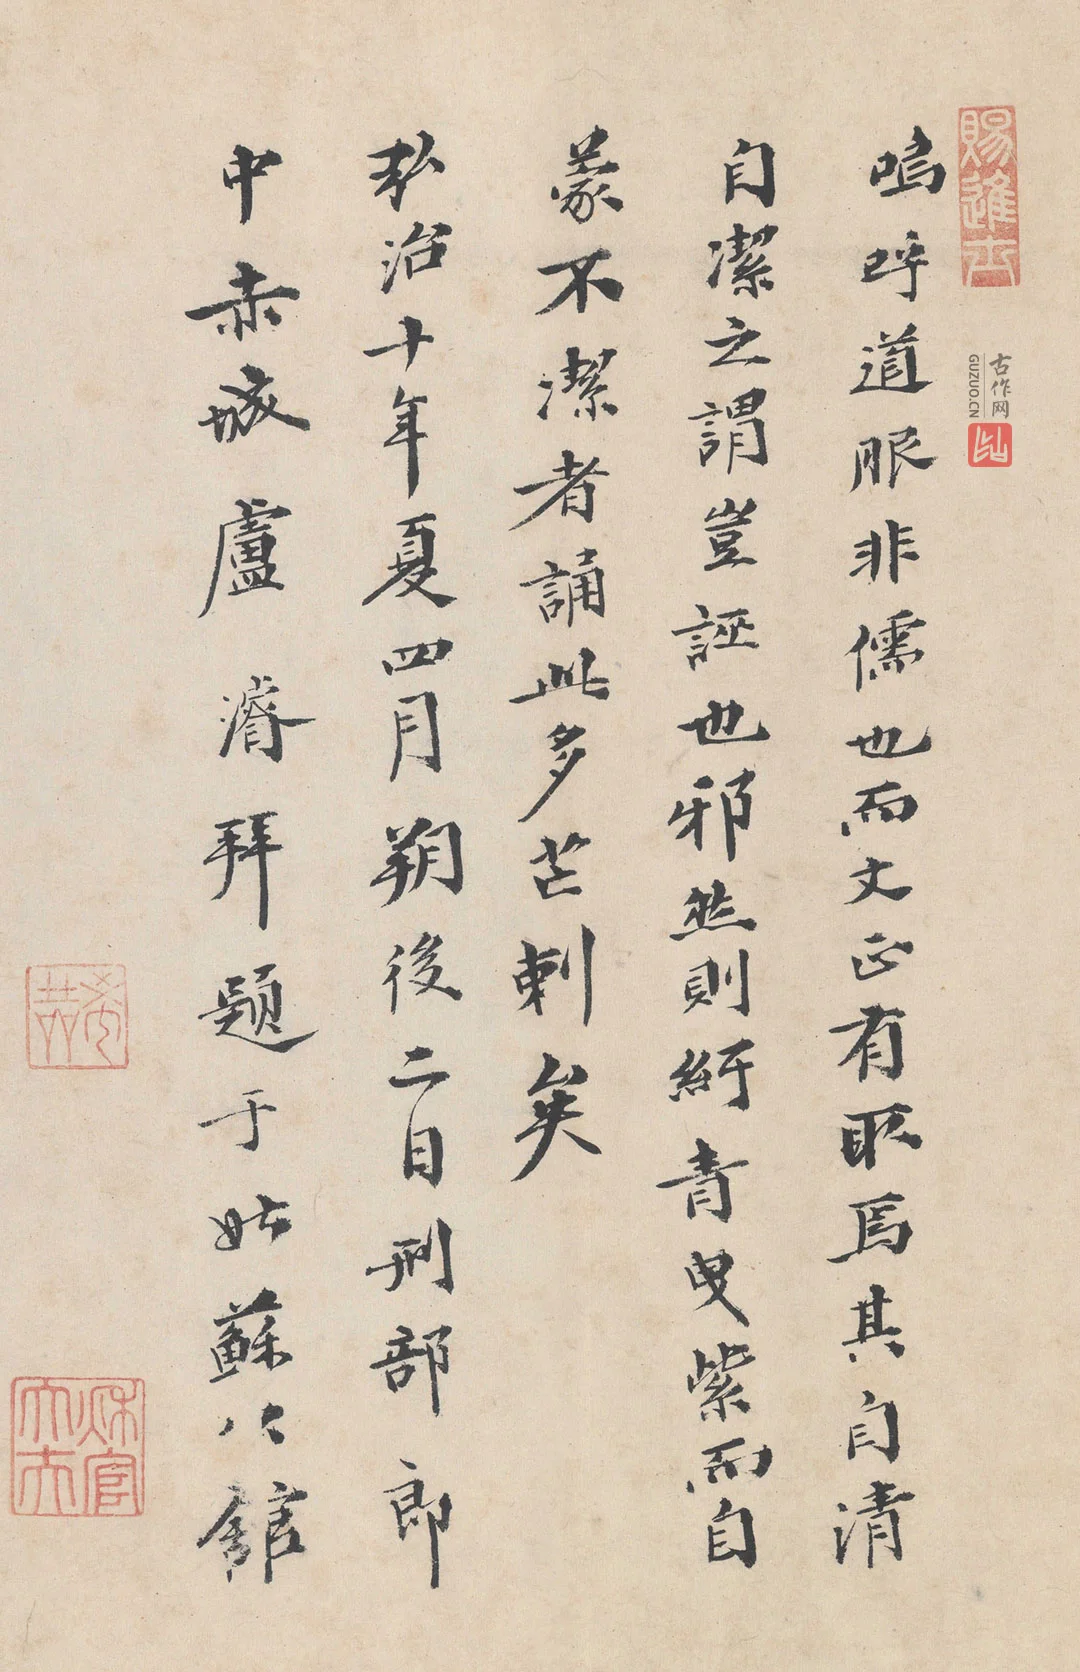 嗚呼道服非儒也而文正有取焉其自清
自潔之謂豈誣也邪然則紆青曳紫而自
蒙不潔者誦此多芒刺矣
弘治十年夏四月朔後二日刑部郎
中赤城盧濬拜題于姑蘇公館
賜進士
古作网
GUZUO.CN
秋官大夫